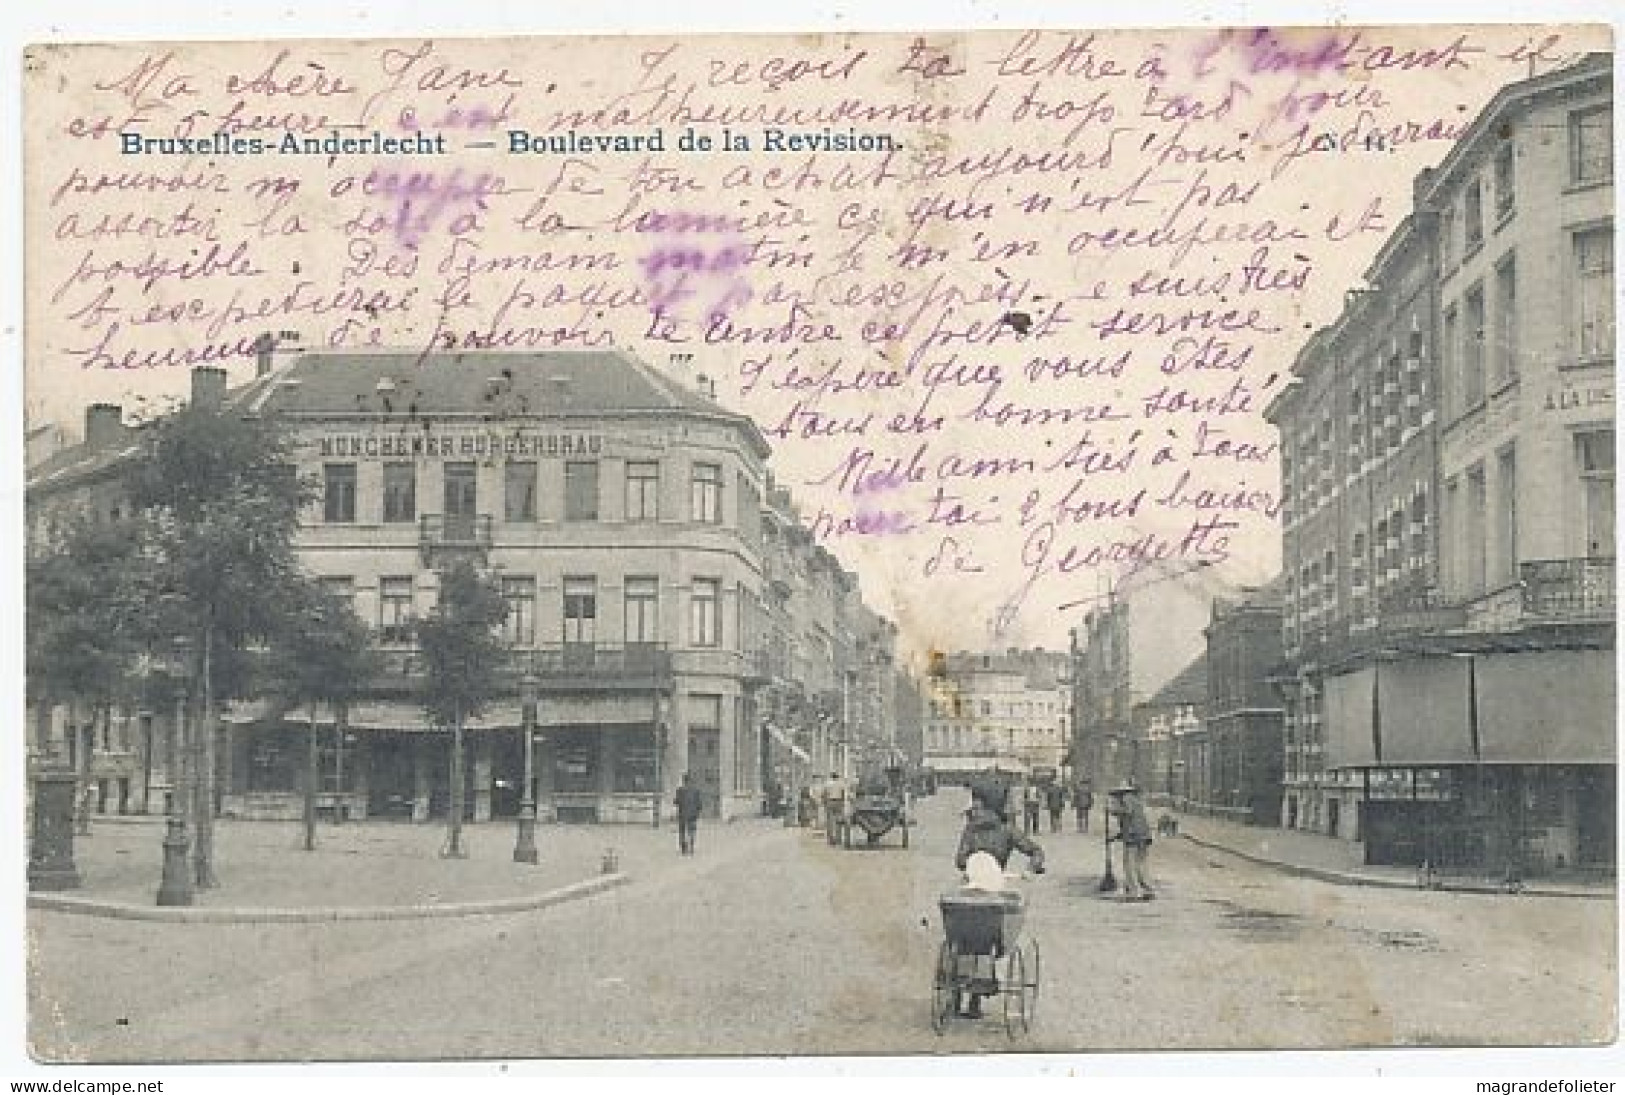 Ma chère Jane. — Je reçois ta lettre à l'instant il
est 5 heure c'est malheureusement trop tard pour
Bruxelles-Anderlecht — Boulevard de la Revision.
pouvoir m'occuper de ton achat aujourd'hui. Je devrais
assortir la soie à la lumière ce qui n'est pas
possible. Dès demain matin je m'en occuperai et
t'expedierai le paquet par exprès. Je suis très
heureuse de pouvoir te rendre ce petit service.
J'espère que vous êtes
tous en bonne santé,
Mille amitiés à tous
pour toi 2 bons baisers
de Georgette
MÜNCHENER BÜRGERBRÄU
A LA
delcampe.net
magrandefolieter